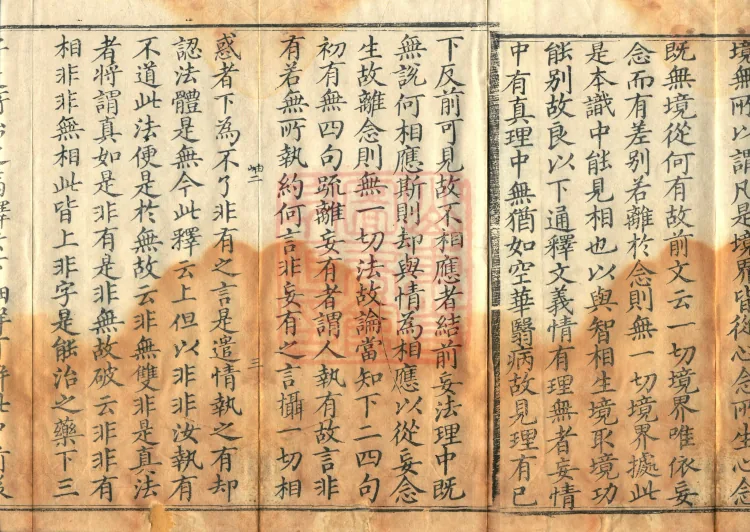 境無所以謂凡是境界皆從心念所生心念
既無境從何有故前文云一切境界唯依妄
念而有差别若離於念則無一切境界據此
是本識中能見相也以與智相生境取境功
能别故良以下通釋文義情有理無者妄情
中有真理中無猶如空華翳病故見理有已
下反前可見故不相應者結前妄法理中既
無說何相應斯則却與情為相應以從妄念
生故離念則無一切法故論當知下二四句
初有無四句䟽離妄有者謂人執有故言非
有若無所執約何言非妄有之言攝一切相
岫二
三
惑者下為不了非有之言是遣情執之有却
認法體是無今此釋云上但以非非汝執有
不道此法便是於無故云非無雙非是真法
者將謂真如是非有是非無故破云非非有
相非非無相此皆上非字是能治之藥下三